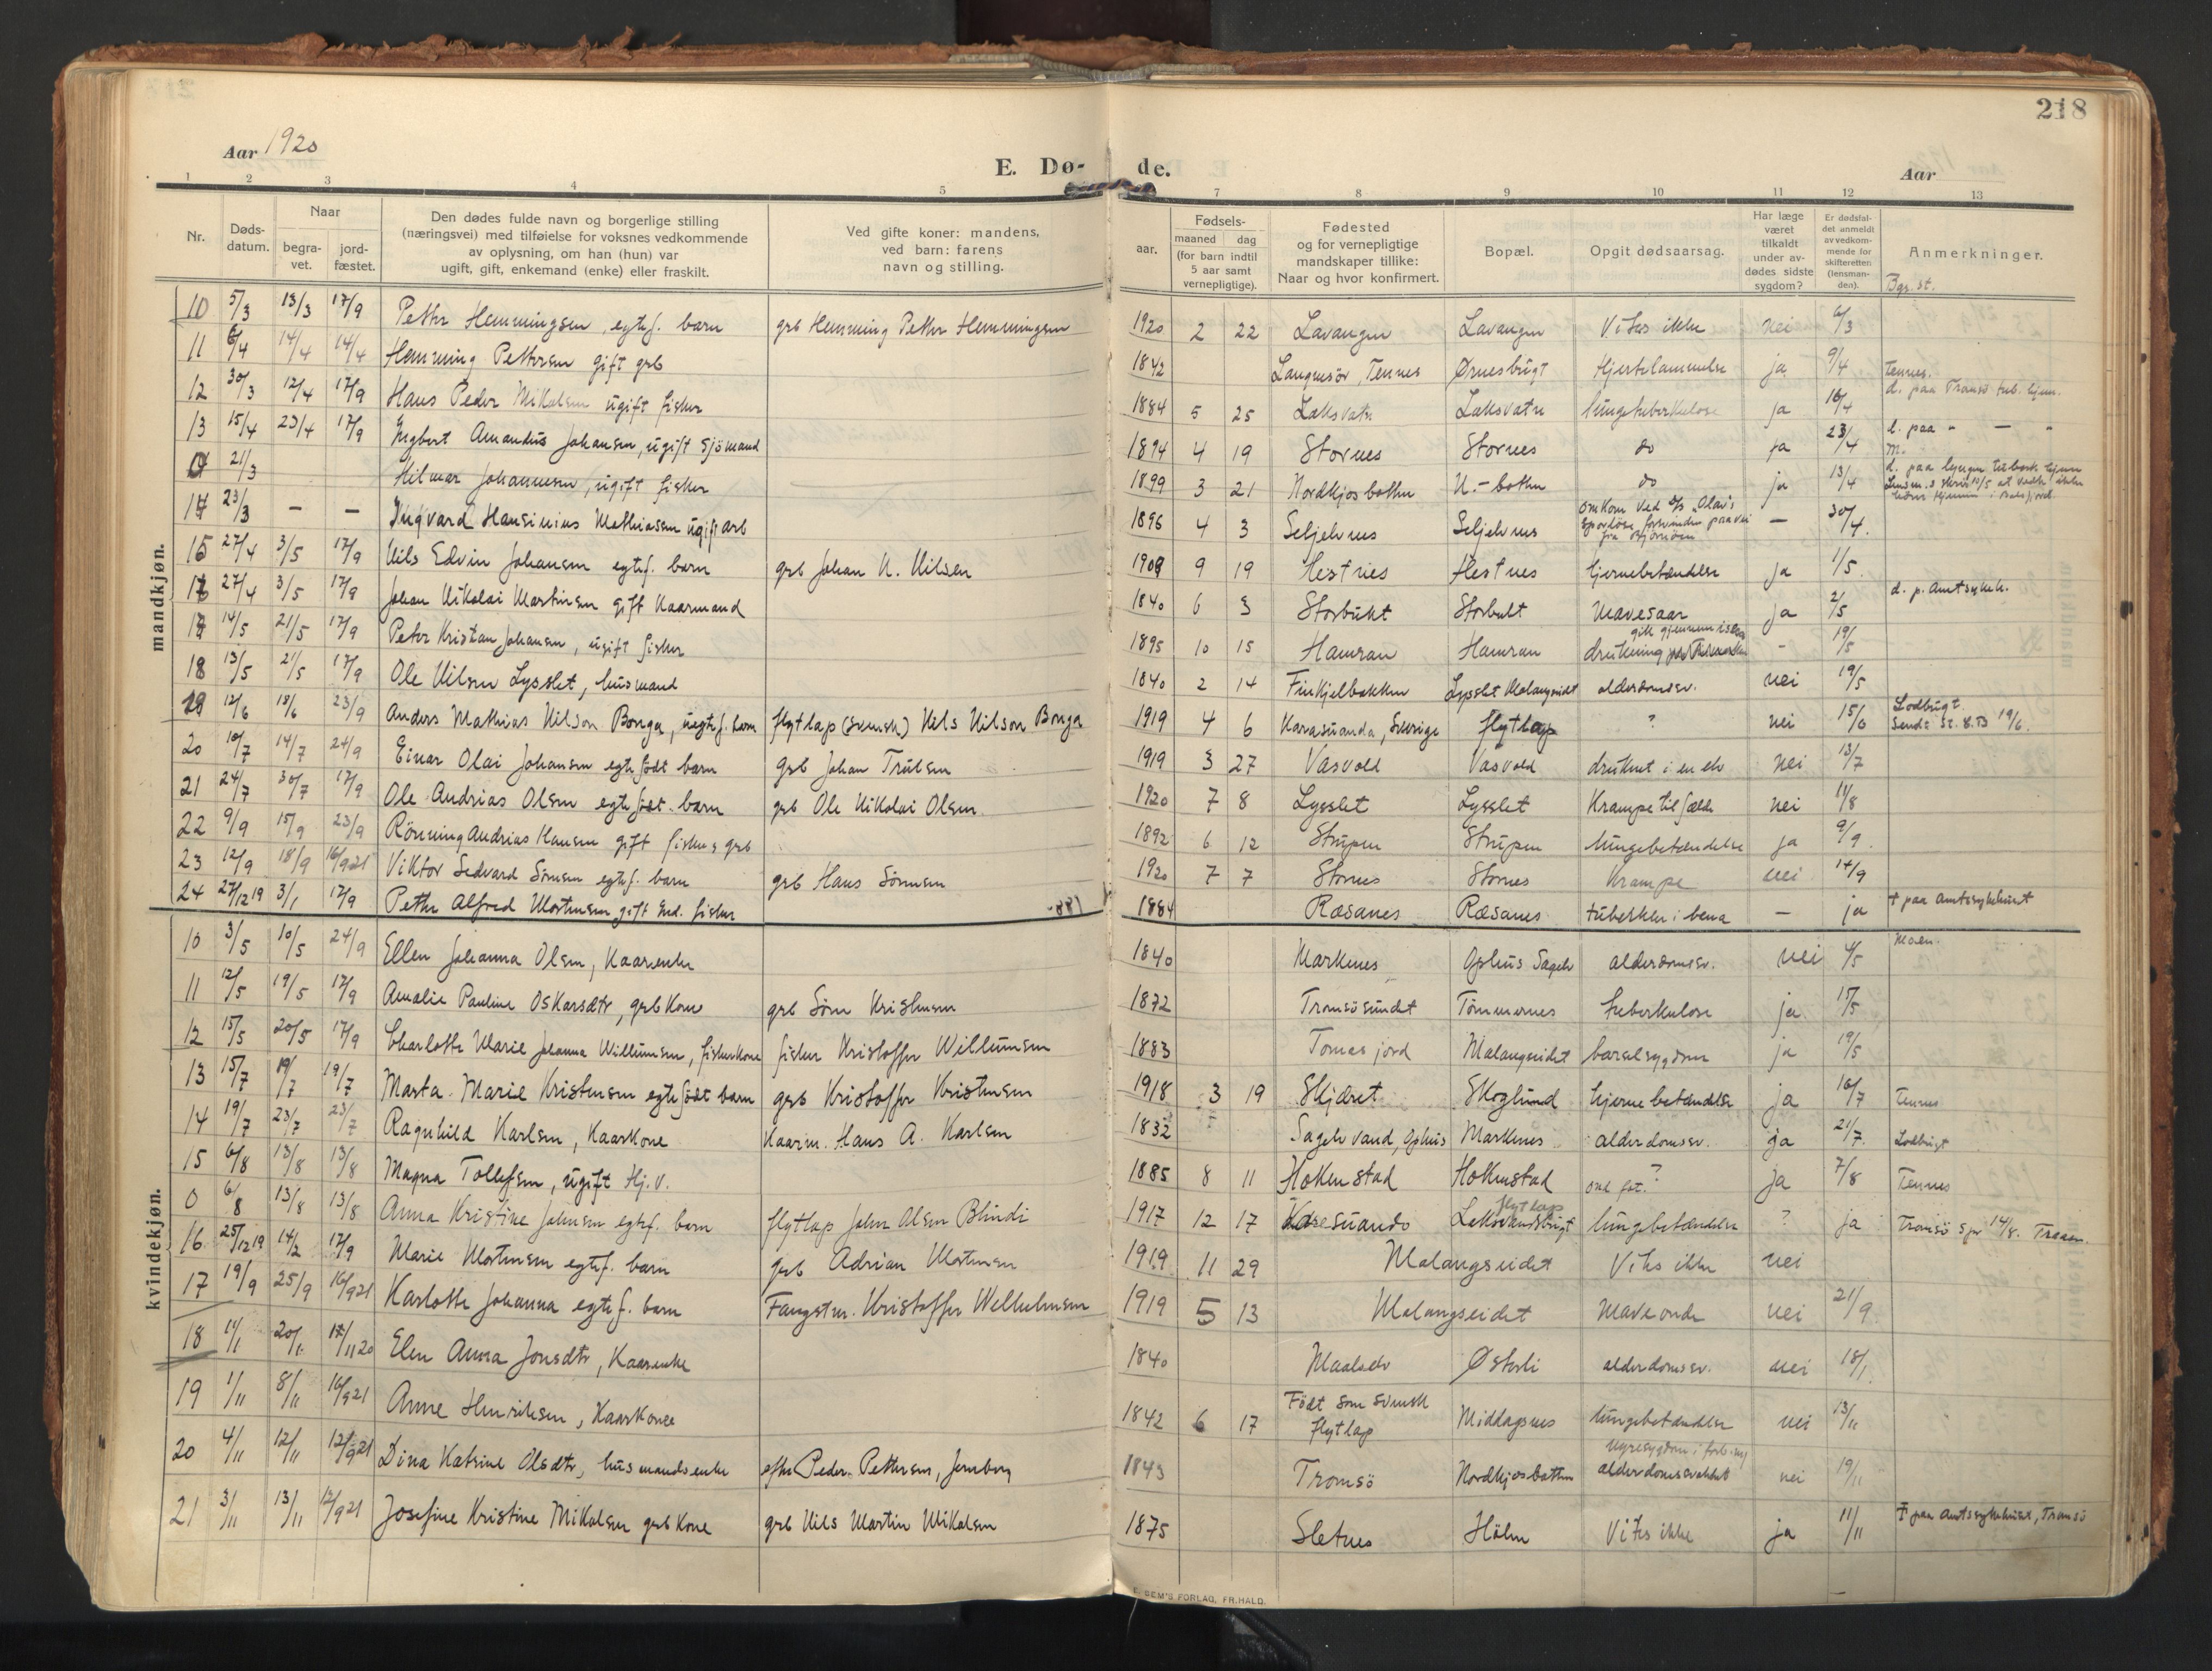 218
Aar 1920
E. Dø-
de.
Aar
1 2 3 4 5 7 8 9 10 11 12 13
Nr.
Døds-
datum.
Naar
begra-
vet.
jord-
fæstet.
Den dødes fulde navn og borgerlige stilling
(næringsvei) med tilføielse for voksnes vedkommende
av oplysning, om han (hun) var
ugift, gift, enkemand (enke) eller fraskilt.
Ved gifte koner: mandens,
ved barn: farens
navn og stilling.
Fødsels-
aar.
maaned dag
(for barn indtil
5 aar samt
vernepligtige).
Fødested
og for vernepligtige
mandskaper tillike:
Naar og hvor konfirmert.
Bopæl.
Opgit dødsaarsag.
Har læge
været
tilkaldt
under av-
dødes sidste
sygdom?
Er dødsfal-
det anmeldt
av vedkom-
mende for
skifteretten
(lensman-
den).
Anmerkninger.
Bgr. st.
mandkjøn.
10 5/3 13/3 17/9 Petter Hemmingsen, egtef. barn grb Hemming Petter Hemmingsen 1920 2 22 Lavangen Lavangen Vites ikke nei 6/3
11 6/4 14/4 14/4 Hemming Pettersen gift grb 1842 Langnesør, Tennes Ørnesbugt Hjertelammelse ja 9/4 Tennes.
12 30/3 12/4 17/9 Hans Peder Mikalsen ugift fisker 1884 5 25 Laksvatn Laksvatn lungetuberkulose ja 16/4 d. paa Tromsø tub. hjem.
13 15/4 23/4 17/9 Ingbert Amandus Johansen, ugift Sjömand 1894 4 19 Stornes Stornes do ja 23/4 d. paa " — "
21/3 Hilmar Johannesen, ugift fisker 1899 3 21 Nordkjosbotten N.-botten do ja 13/4 d. paa Lyngen tuberk. hjem
14 23/3 — — Ingvard Hansinius Mathiasen ugift arb 1896 4 3 Seljelvnes Seljelvnes omkom ved D/s "Olai"s sporløse forsvinden paa vei fra Bjørnøen — 30/4
15 27/4 3/5 17/9 Nils Edvin Johansen egtef. barn grb Johan N. Nilsen 1909 9 19 Hestnes Hestnes hjernebetændelse ja 1/5
16 27/4 3/5 17/9 Johan Nikolai Martinsen gift Kaarmand 1840 6 3 Storbukt Storbukt Mavesaar ja 2/5 d. p. Amtsykeh.
17 14/5 21/5 17/9 Peter Kristian Johansen, ugift fisker 1895 10 15 Hamran Hamran gik gjennem isen drukning - 19/5
18 13/5 21/5 17/9 Ole Nilsen Lysslet, husmand 1840 2 14 Finkjelbakken Lysslet Malangseidet alderdomssv. nei 19/5
19 12/6 18/6 23/9 Anders Mathias Nilson Bonga, uegtef. barn flytlap (svensk) Nils Nilson Bonga 1919 4 6 Karasuanda, Sverige flytlap ? nei 15/6 Lodbugt. Sendt St. K.B 19/6.
20 10/7 14/7 24/9 Einar Olai Johansen egtefödt barn grb Johan Trulsen 1919 3 27 Vasvold Vasvold druknet i en elv nei 13/7
21 24/7 30/7 17/9 Ole Andrias Olsen egtefödt barn grb Ole Nikolai Olsen 1920 7 8 Lysslet Lysslet Krampetilfælde nei 11/8
22 9/9 15/9 23/9 Rönning Andrias Hansen gift fisker s grb 1892 6 12 Strupen Strupen lungebetændelse ja 9/9
23 12/9 18/9 16/9 21 Viktor Sedvard Sörensen egtef. barn grb Hans Sörensen 1920 7 7 Stornes Stornes Krampe nei 14/9
24 27/12 19 3/1 17/9 Petter Alfred Mortensen gift fisker 1884 Ræsanes Ræsanes tuberkler i bena — ja † paa Amtssykehuset
kvindekjøn.
10 3/5 10/5 24/9 Ellen Johanna Olsen, Kaarenke 1840 Markenes Ophus Sagelv alderdomssv. nei 4/5 Moen.
11 12/5 19/5 17/9 Amalie Pauline Oskarsdtr, grb Kone grb Sören Kristensen 1872 Tromsösundet Tömmernes tuberkulose ja 15/5
12 15/5 20/5 17/9 Charlotte Marie Johanna Willumsen, fiskerkone fisker Kristoffer Willumsen 1883 Tomasjord Malangseidet barselsygdom ja 19/5
13 15/7 19/7 19/7 Marta Marie Kristensen egtefödt barn grb Kristoffer Kristensen 1918 3 19 Skjæret Skoglund hjernebetændelse ja 16/7 Tennes
14 19/7 23/7 23/7 Ragnhild Karlsen, Kaarkone Kaarm. Hans A. Karlsen 1832 Sagelvvand, Ophus Markenes alderdomssv. ja 21/7 Lodbugt
15 6/8 13/8 13/8 Magna Tollefsen, ugift Hj.v. 1885 8 11 Hokenstad Hokenstad ja 7/8 Tennes
0 6/8 13/8 13/8 Anna Kristine Johnsen egtef. barn flytlap John Olsen Blindi 1917 12 17 Karesuando flytlap Leksvandsbugt lungebetændelse ? ja Tromsö spr 14/8.
16 25/12 19 14/2 17/9 Marie Mortensen egtef. barn grb Adrian Mortensen 1919 11 29 Malangseidet Vites ikke nei
17 19/9 25/9 16/9 21 Karlotte Johanna egtef. barn Fangstm. Kristoffer Welhelmsen 1919 5 13 Malangseidet Maveonde nei 21/9
18 11/1 20/1 17/11 20 Elen Anna Jonsdtr, Kaarenke 1840 Maalselv Østerli alderdomssv. nei 18/1
19 1/11 8/11 16/9 21 Anne Henriksen, Kaarkone 1842 6 17 Födt som svensk flytlap Middagsnes lungebetændelse nei 13/11
20 4/11 12/11 12/9 21 Dina Katrine Olsdtr, husmandsenke efter Peder Pettersen, Jernberg 1843 Tromsö Nordkjosbotten Nyresygdom i forb. m/ alderdomssvakhet nei 19/11
21 3/11 13/11 12/9 21 Josefine Kristine Mikalsen grb kone grb Nils Martin Mikalsen 1875 Sletnes Holm Vites ikke ja 11/11 † paa Amtssykehuset, Tromsö
E. SEM'S FORLAG, FR.HALD.